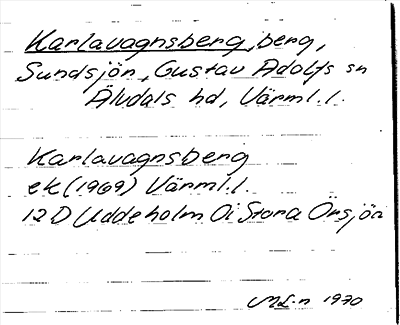 Karlavagnsberg, berg,
Sundsjön, Gustav Adolfs sn
Älvdals hd, Värml.l.
Karlavagnsberg
ek (1969) Värml.l.
12 D Uddeholm Öi Stora Örsjön
1970